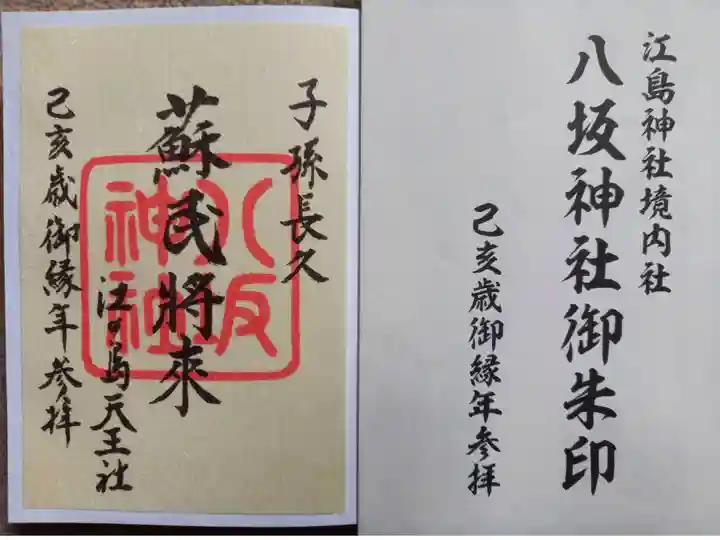 子孫長久
蘇民將來
江の島天王社
己亥歳御縁年参拝
八坂神社
江島神社境内社
八坂神社御朱印
己亥歳御縁年参拝